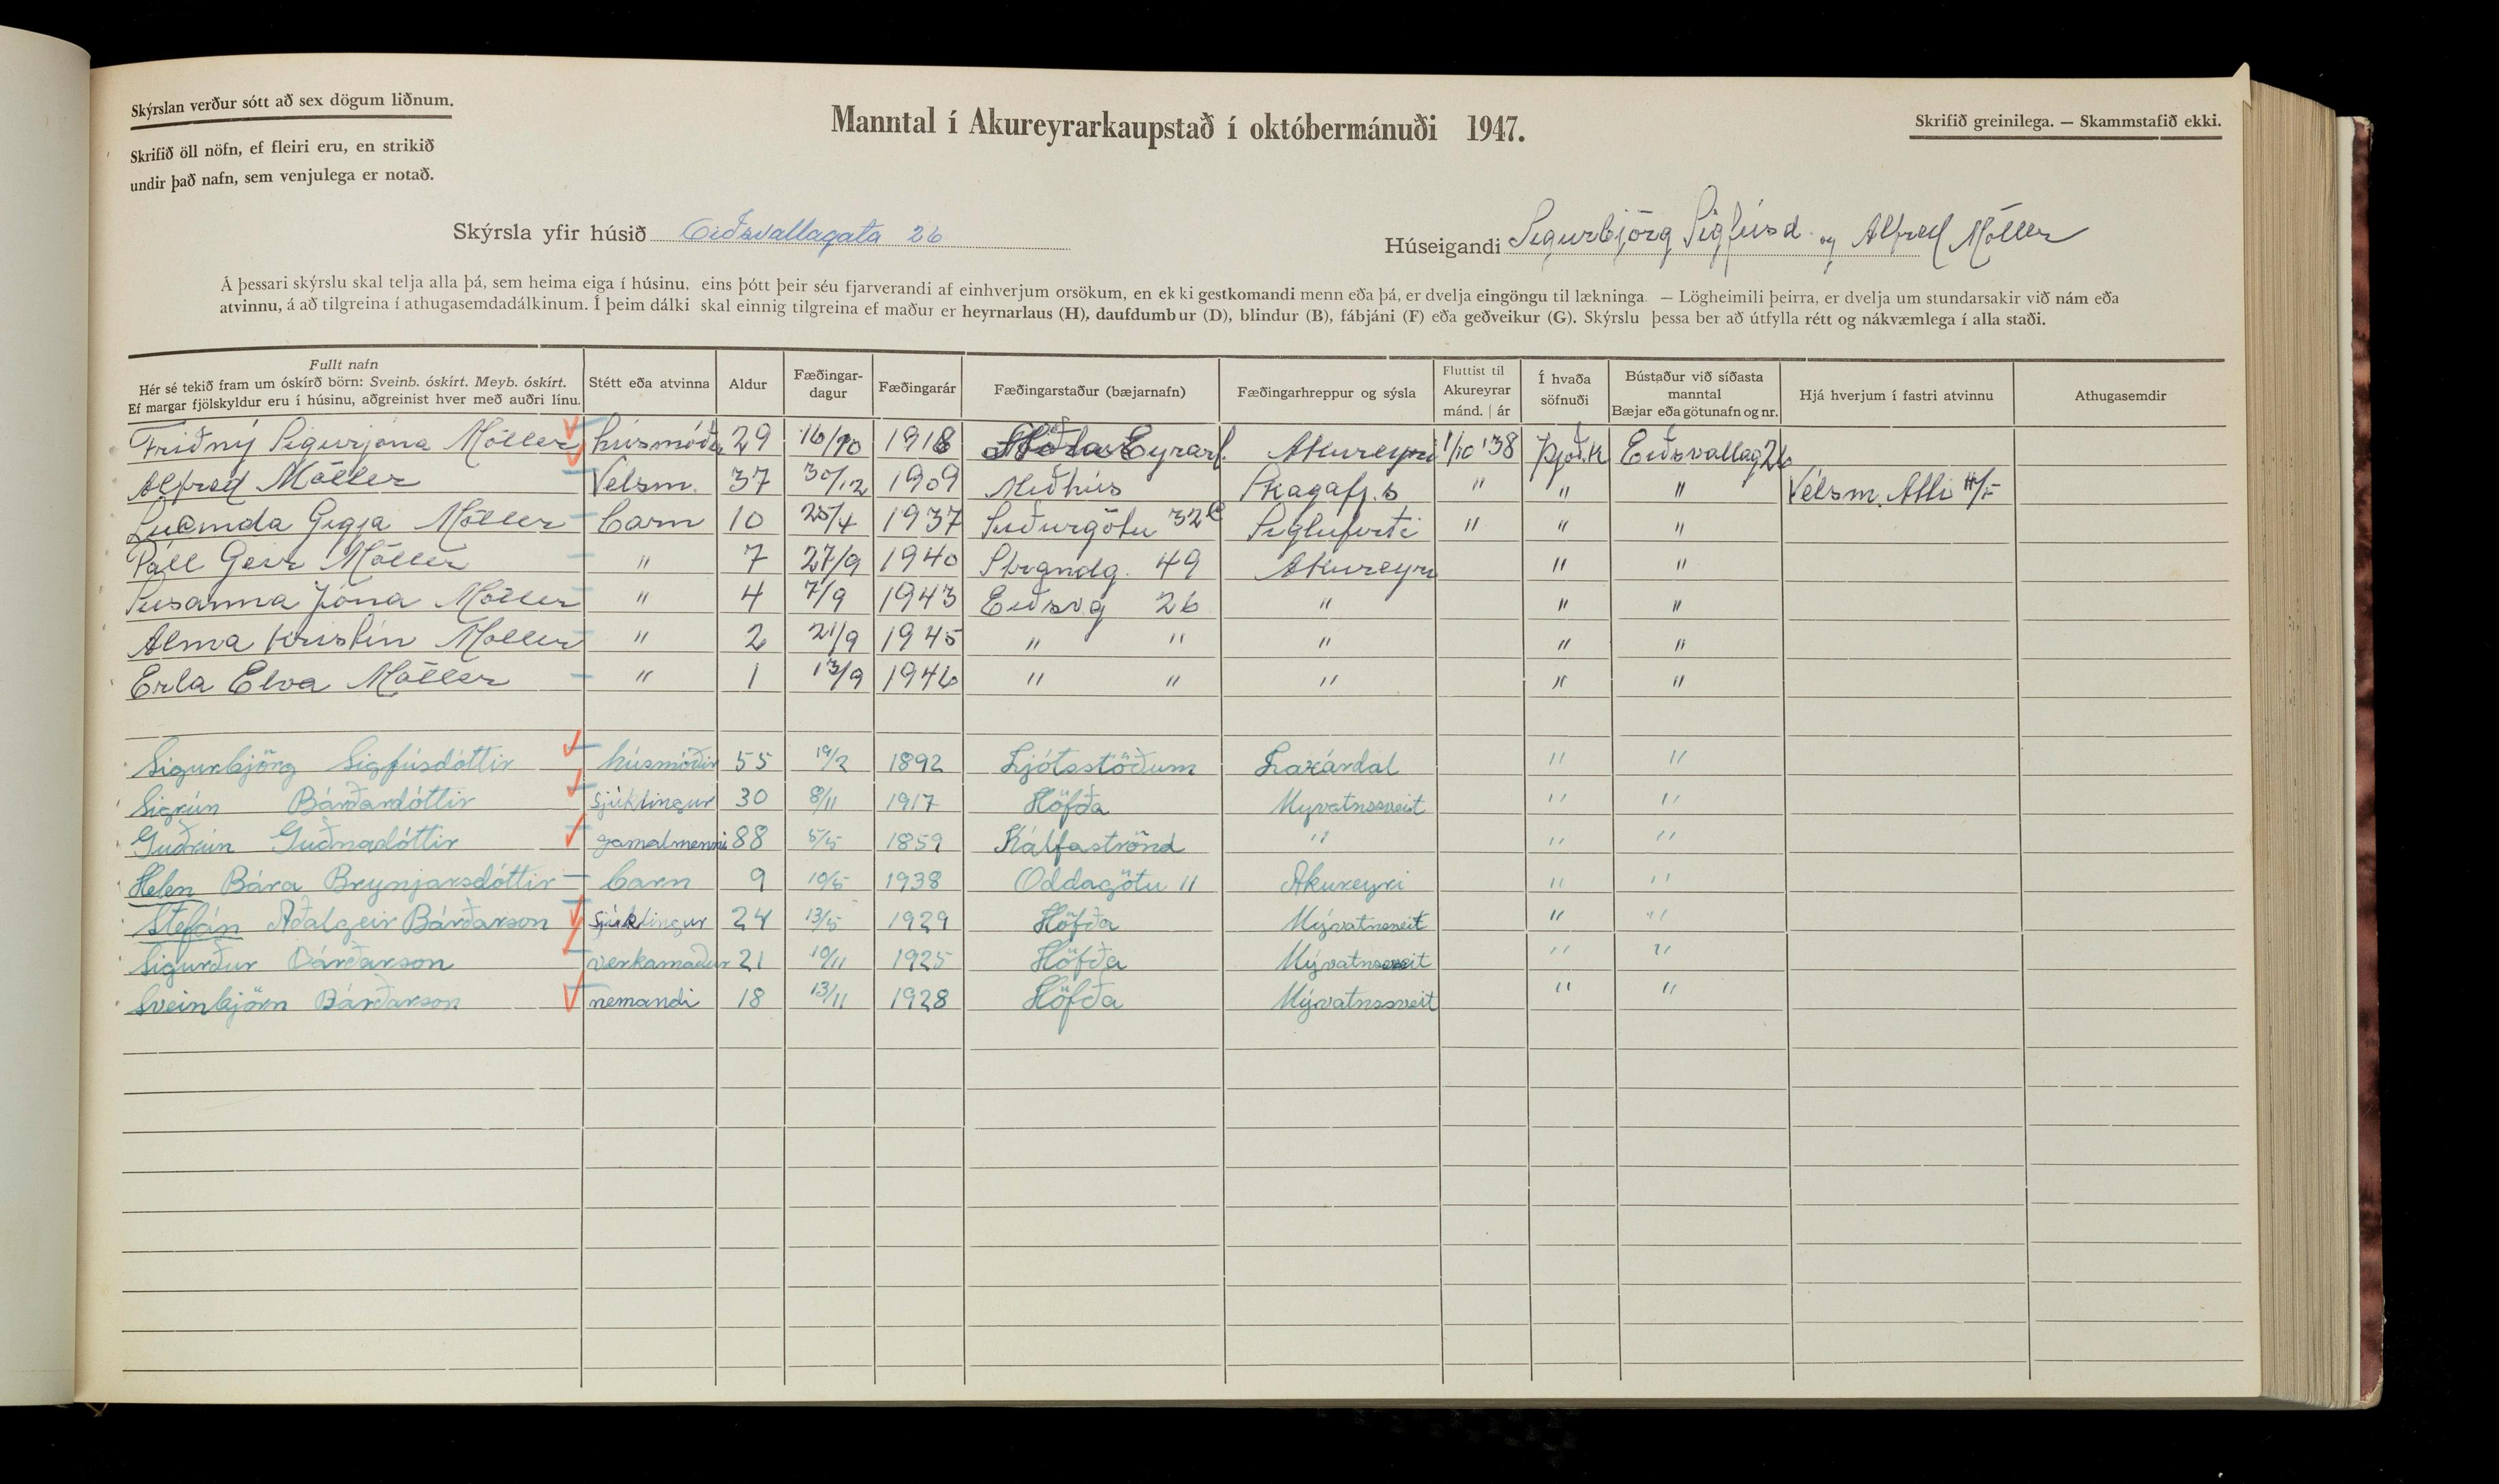 Skýrslan verður sótt að sex dögum liðnum.
Skrifið öll nöfn, ef fleiri eru, en strikið
undir það nafn, sem venjulega er notað.
Manntal í Akureyrarkaupstað í októbermánuði 1947.
Skrifið greinilega. — Skammstafið ekki.
Skýrsla yfir húsið Eiðsvallagata 26
Húseigandi Sigurbjörg Sigfúsd. og Alfred Möller
Á þessari skýrslu skal telja alla þá, sem heima eiga í húsinu, eins þótt þeir séu fjarverandi af einhverjum orsökum, en ekki gestkomandi menn eða þá, er dvelja eingöngu til lækninga. — Lögheimili þeirra, er dvelja um stundarsakir við nám eða
atvinnu, á að tilgreina í athugasemdadálkinum. Í þeim dálki skal einnig tilgreina ef maður er heyrnarlaus (H), daufdumbur (D), blindur (B), fábjáni (F) eða geðveikur (G). Skýrslu þessa ber að útfylla rétt og nákvæmlega í alla staði.
Fullt nafn
Hér sé tekið fram um óskírð börn: Sveinb. óskírt. Meyb. óskírt.
Ef margar fjölskyldur eru í húsinu, aðgreinist hver með auðri línu.
Stétt eða atvinna
Aldur
Fæðingar-
dagur
Fæðingarár
Fæðingarstaður (bæjarnafn)
Fæðingarhreppur og sýsla
Fluttist til
Akureyrar
mánd. | ár
Í hvaða
söfnuði
Bústaður við síðasta
manntal
Bæjar eða götunafn og nr.
Hjá hverjum í fastri atvinnu
Athugasemdir
Friðný Sigurjóna Möller húsmóðir 29 16/10 1918 Eyrarl. Akureyri 1/10 '38 Þjóð.k Eiðsvallag 26
Alfred Möller Vélsm. 37 30/12 1909 Miðhús Skagafj.s " " " Vélsm. Atli H/F
Lucinda Gígja Möller barn 10 25/4 1937 Suðurgötu 32 Siglufirði " " "
Páll Geir Möller " 7 27/9 1940 Strandg. 49 Akureyri " "
Susanna Jóna Möller " 4 7/9 1943 Eiðsvg 26 " " "
Alma Kristín Möller " 2 21/9 1945 " " " " "
Erla Elva Möller " 1 13/9 1946 " " " " "
Sigurbjörg Sigfúsdóttir húsmóðir 55 19/2 1892 Ljótsstöðum Laxárdal " "
Sigrún Bárðardóttir sjúklingur 30 8/11 1917 Höfða Myvatnssveit " "
Guðrún Guðnadóttir gamalmenni 88 5/5 1859 Kálfaströnd " " "
Helen Bára Brynjarsdóttir barn 9 10/5 1938 Oddagötu 11 Akureyri " "
Stefán Aðalgeir Bárðarson sjúklingur 24 13/5 1929 Höfða Mývatnsveit " "
Sigurður Bárðarson verkamaður 21 10/11 1925 Höfða Mývatnssveit " "
Sveinbjörn Bárðarson nemandi 18 13/11 1928 Höfða Mývatnssveit " "